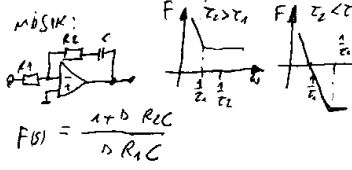 MÁSIK:
R2 C
R1
F τ₂>τ₁
1/τ₁ 1/τ₂ ω
F τ₂<τ
1/τ₁ 1/τ
F(s) = 1+s R2C / s R1C